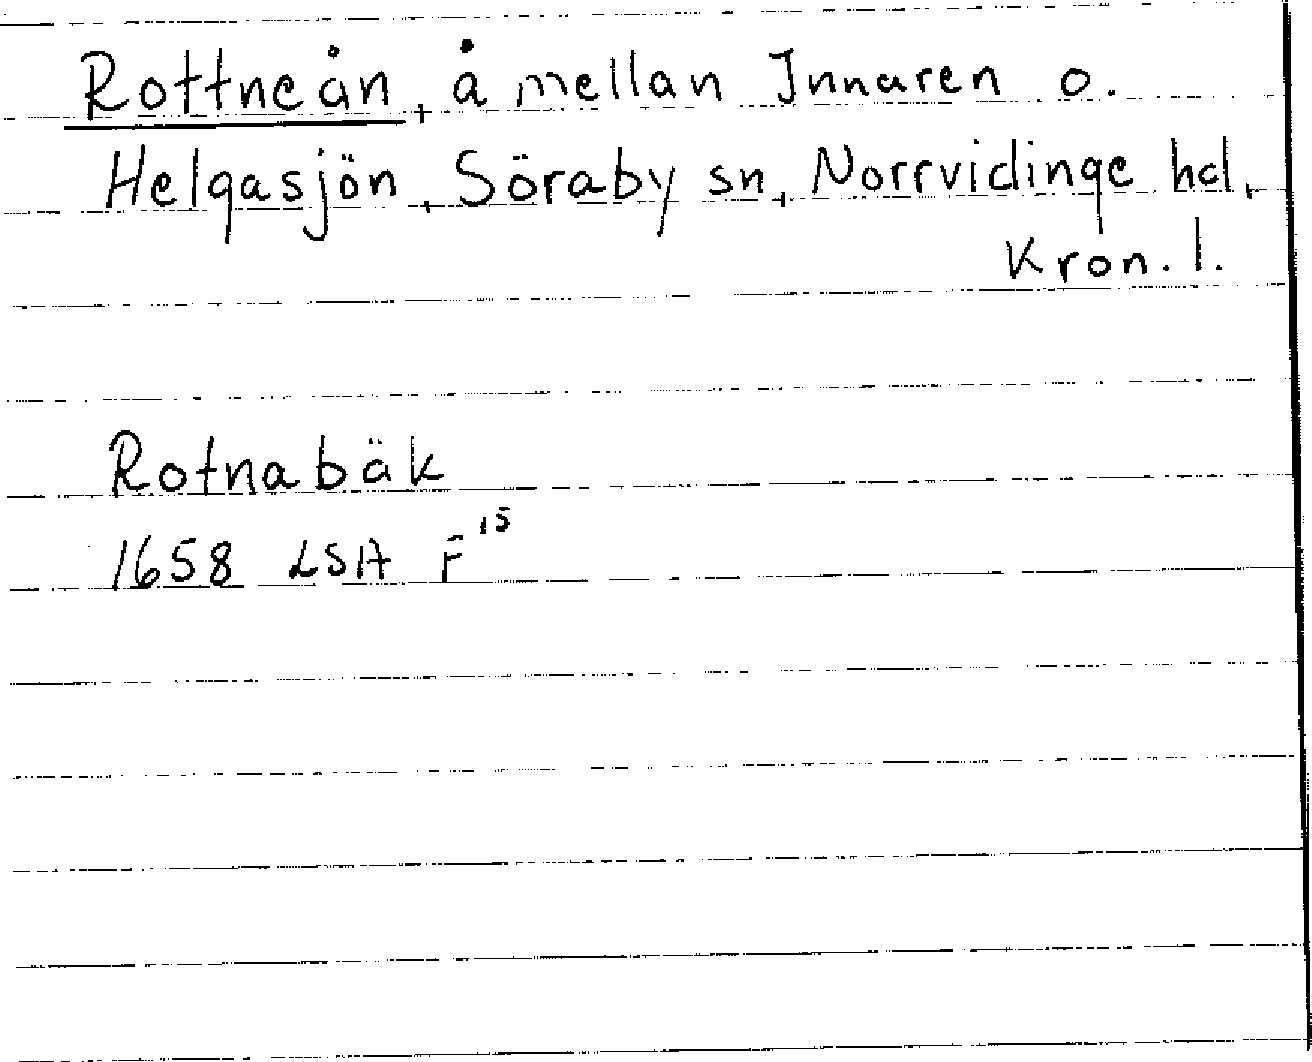 Rottneån, å mellan Innaren o.
Helgasjön, Söraby sn, Norrvidinge hd,
Kron. l.
Rotnabäk
1658 LSA F¹⁵